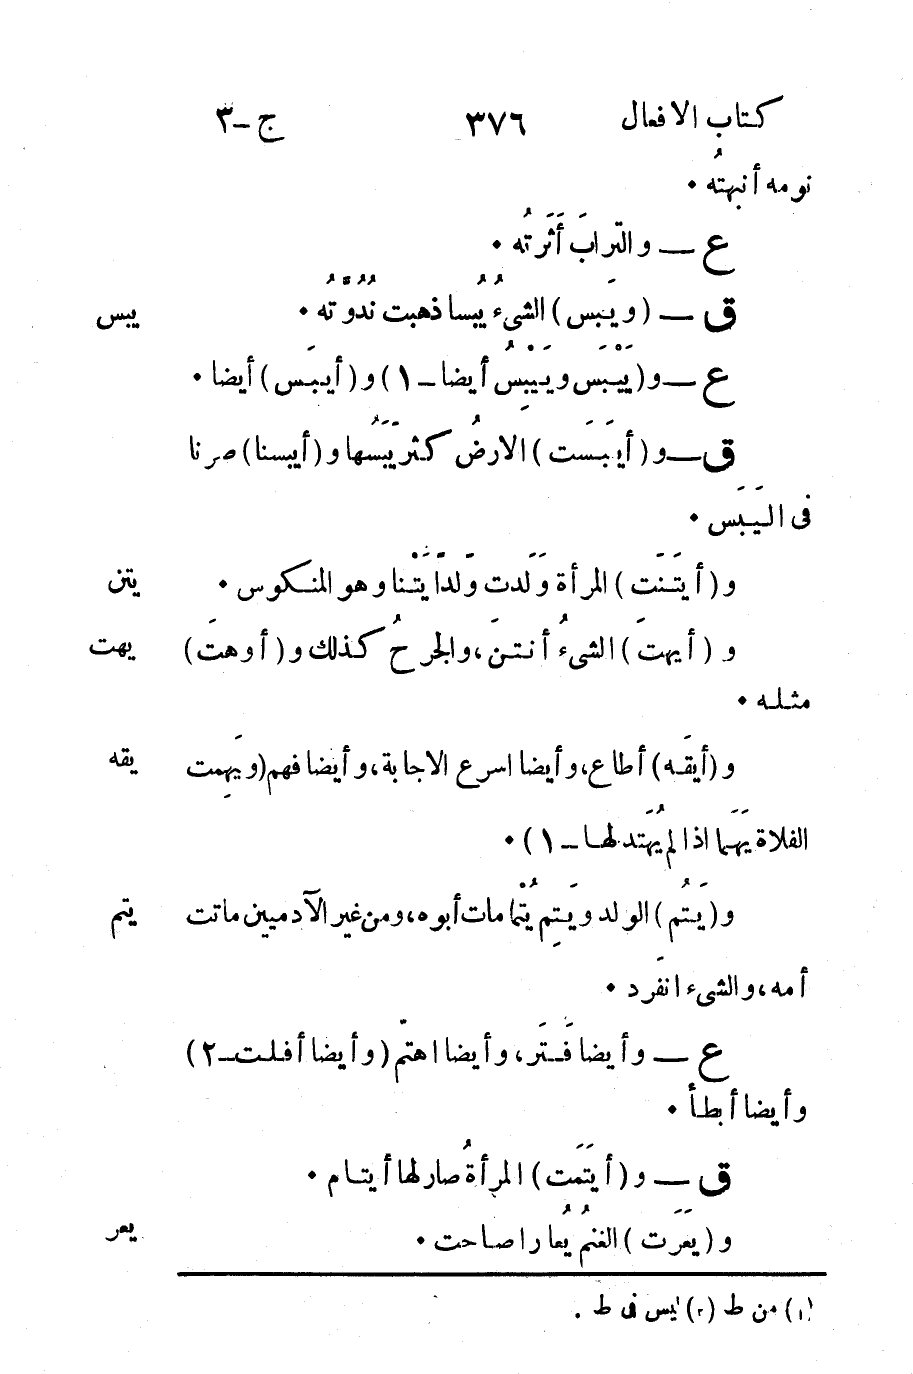 كتاب الافعال ٣٧٦ ج-٣
نومه أنبهتُه •
ع — والترابَ أَثَرتُه •
ق — (ويَبس) الشىءُ يُبُسا ذهبت نُدُوَّتُه • يبس
ع — و(يَيْبَس ويَيْبِسُ أيضا – ١) و(أيبَس) أيضا •
ق — و(أيبَسَت) الارضُ كثر يَبَسُها و(أيبسنا) صرنا
فى اليَبَس •
و(أيتَنَت) المرأة وَلَدت وَلَدًا يَتْنا وهو المنكوس • يتن
و(أيهتَ) الشىءُ أنتنَ، والجرحُ كذلك و(أوهتَ) يهت
مثله •
و(أيقَه) أطاع، وأيضا اسرع الاجابة، وأيضا فهم (ويَهِمت يقه
الفلاة يَهَما اذا لم يُهتَد لها – ١) •
و(يَتُم) الولد ويَتِم يُتْما مات أبوه، ومن غير الآدميين ماتت يتم
أمه، والشىء انفَرد •
ع — وأيضا فَتَر، وأيضا اهتمّ (وأيضا أفلت – ٢)
وأيضا أبطأ •
ق — و(أيتَمَت) المرأةُ صار لها أيتام •
و(يَعَرَت) الغنمُ يُعارا صاحت • يعر
(١) من ط (٢) ليس فى ط .